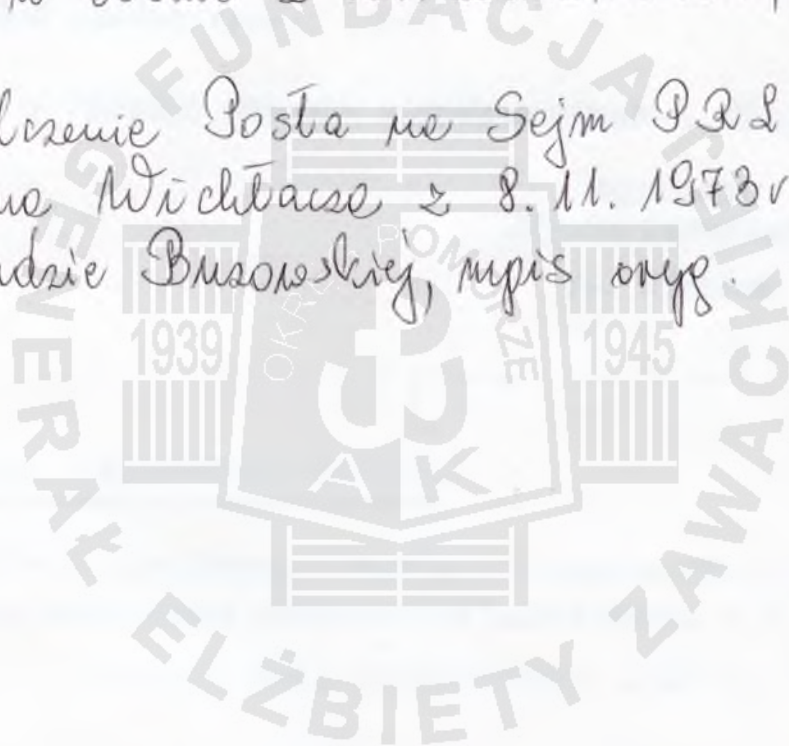 lczenie Posła na Sejm PRL
na Wichłacza z 8.11.1973r
adzie Bruzowskiej, mpis oryg.
FUNDACJA
GENERAŁ ELŻBIETY ZAWACKIEJ
OKRĘG POMORZE
1939
1945
AK